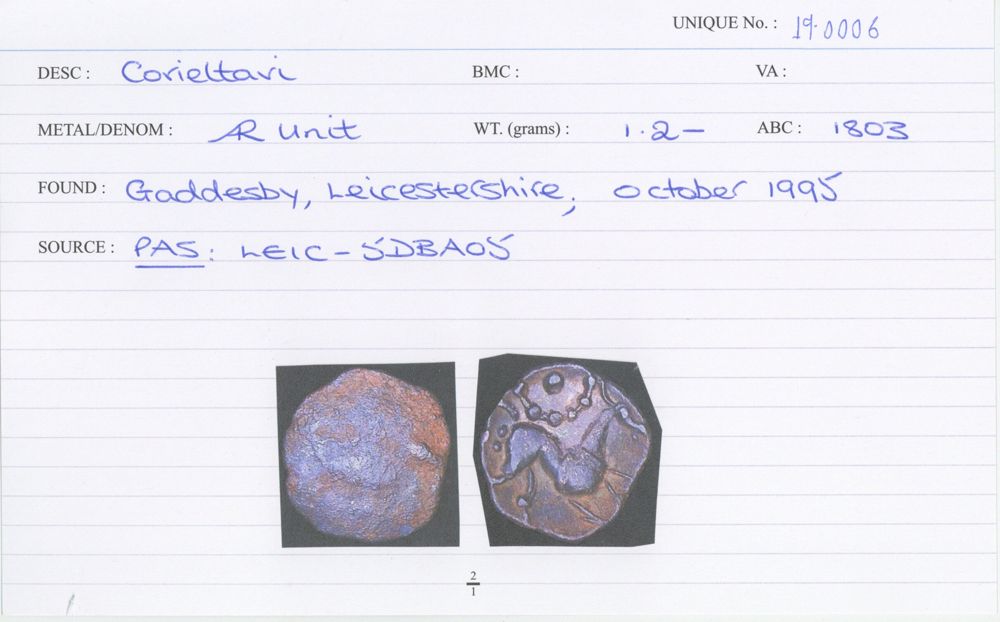 UNIQUE No. : 19.0006
DESC : Corieltavi BMC : VA :
METAL/DENOM : AR Unit WT. (grams) : 1.2— ABC : 1803
FOUND : Gaddesby, Leicestershire; October 1995
SOURCE : PAS: LEIC-5DBA05
2
1